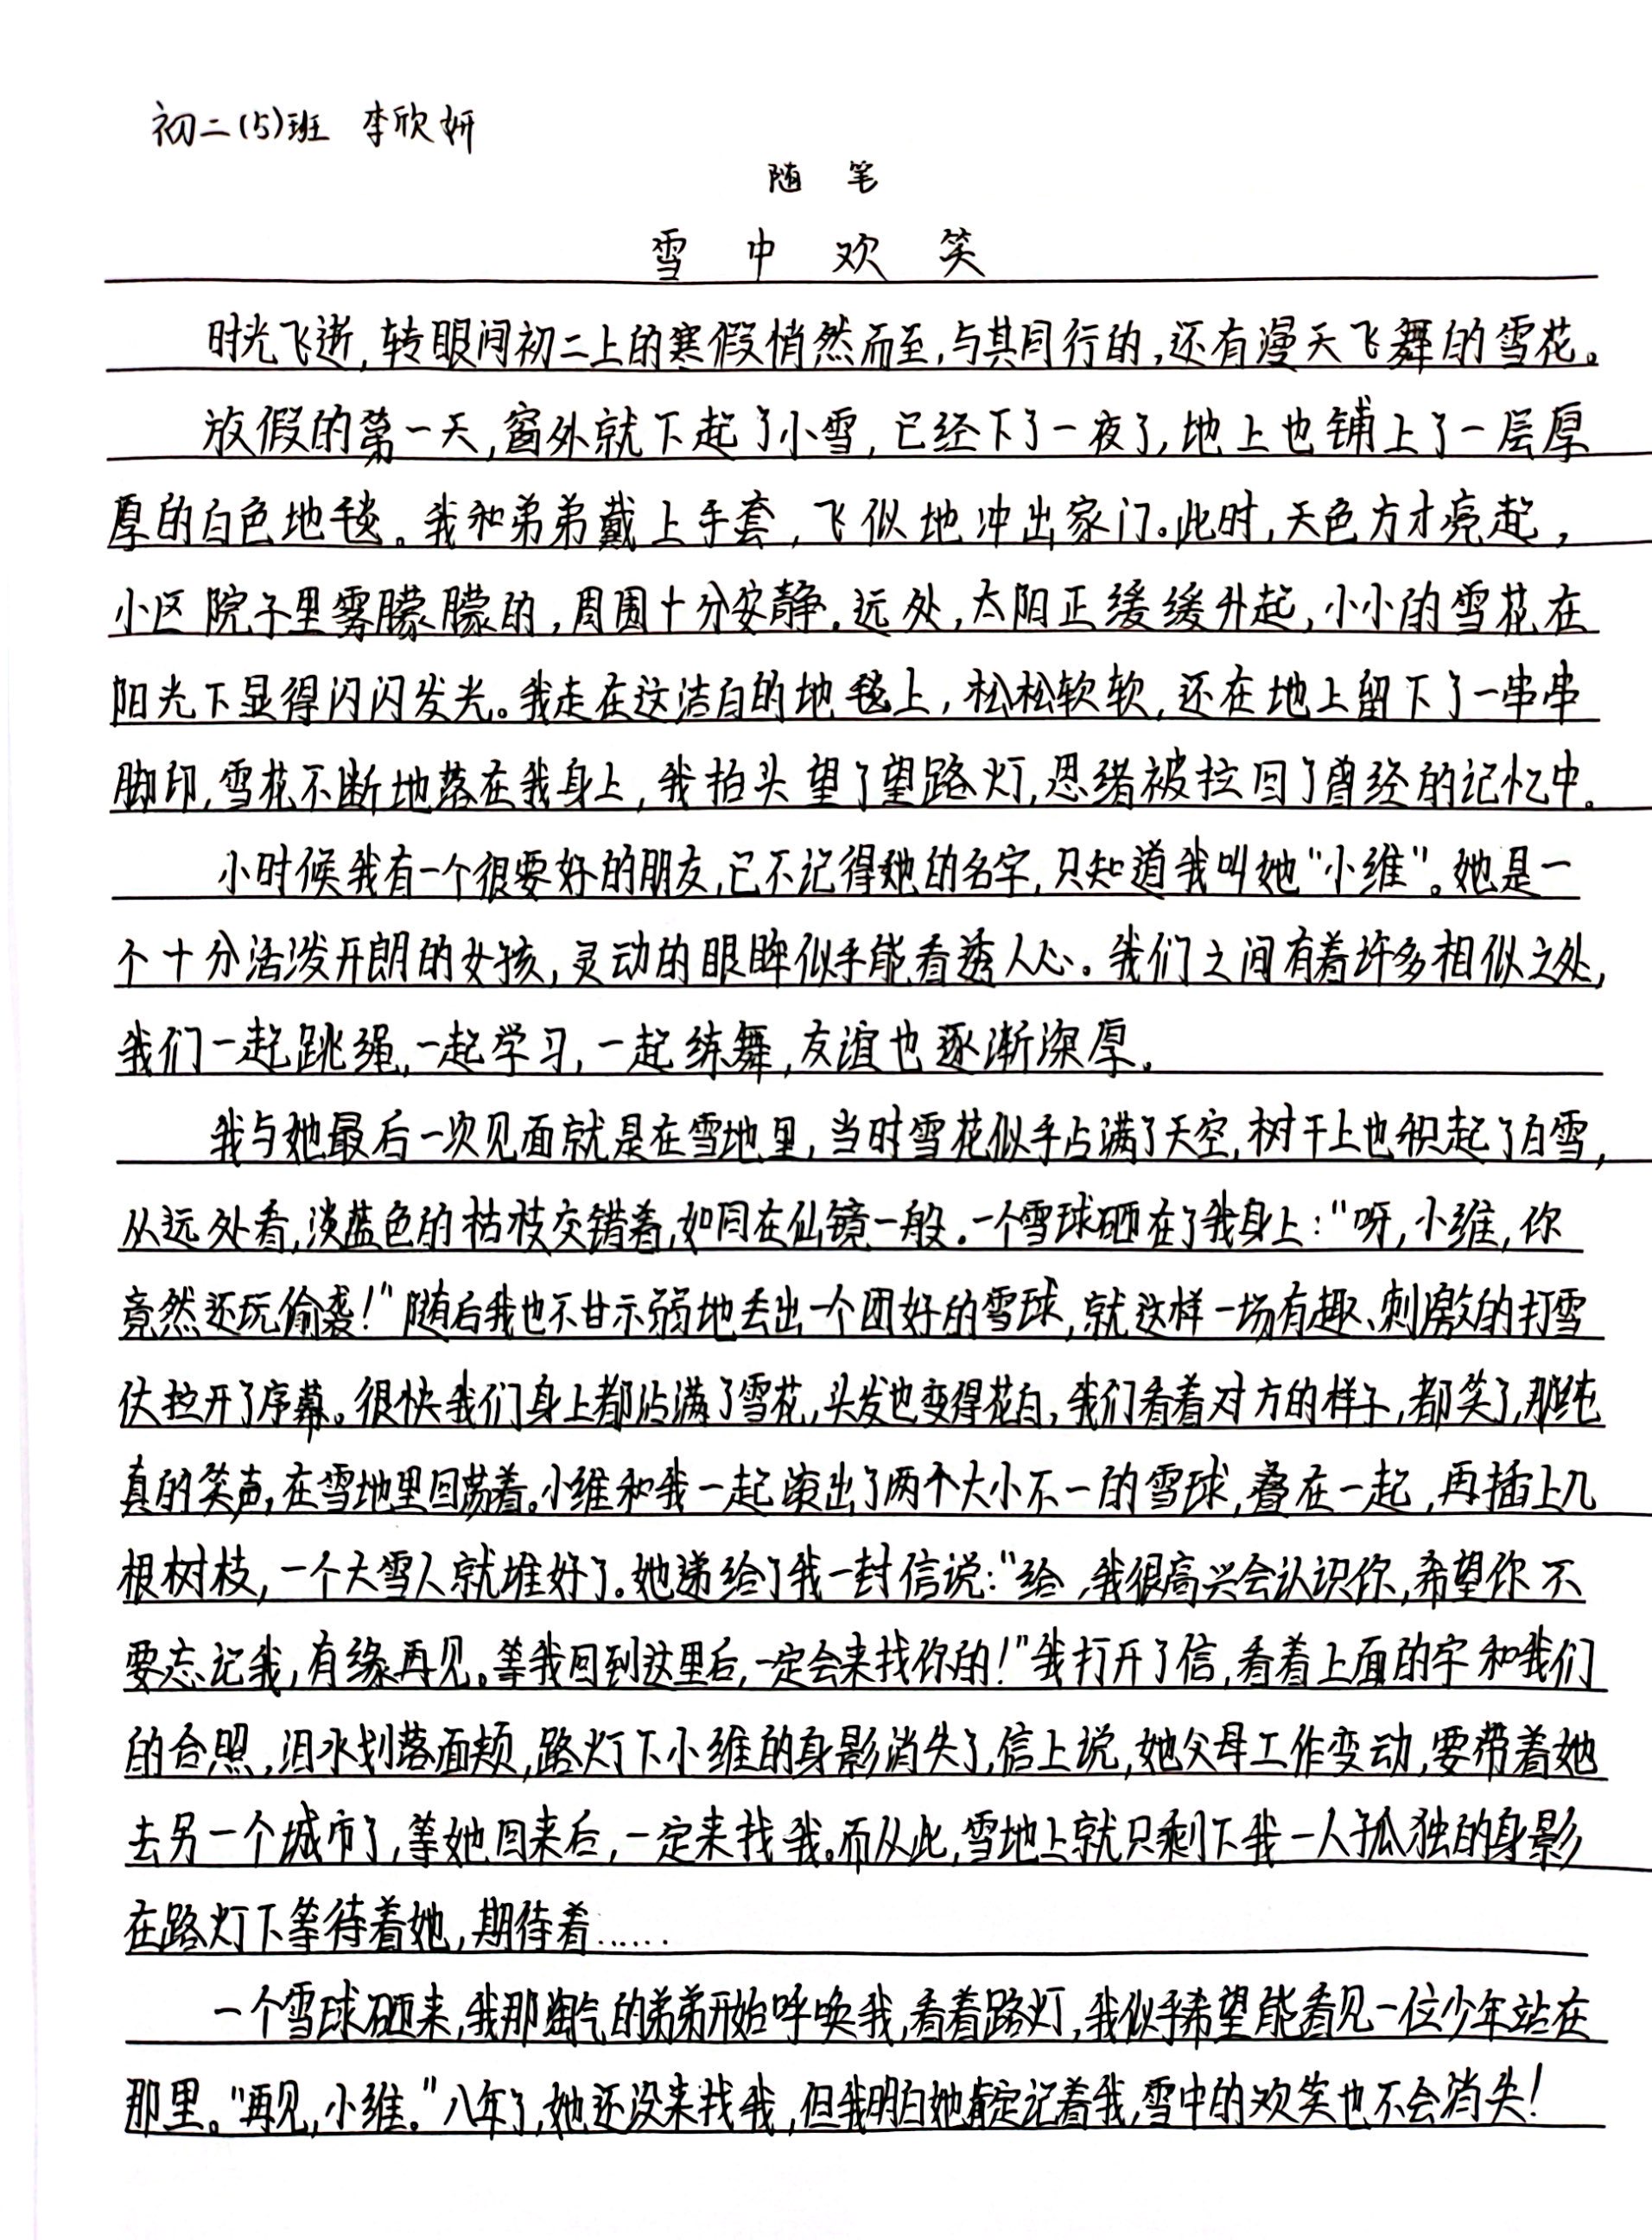 初二(5)班 李欣妍
随 笔
雪 中 欢 笑
时光飞逝,转眼间初二上的寒假悄然而至,与其同行的,还有漫天飞舞的雪花。
放假的第一天,窗外就下起了小雪,已经下了一夜了,地上也铺上了一层厚
厚的白色地毯。我和弟弟戴上手套,飞似地冲出家门。此时,天色方才亮起,
小区院子里雾朦朦的,周围十分安静。远处,太阳正缓缓升起,小小的雪花在
阳光下显得闪闪发光。我走在这洁白的地毯上,松松软软,还在地上留下了一串串
脚印,雪花不断地落在我身上,我抬头望了望路灯,思绪被拉回了曾经的记忆中。
小时候我有一个很要好的朋友,已不记得她的名字,只知道我叫她"小维"。她是一
个十分活泼开朗的女孩,灵动的眼眸似乎能看透人心。我们之间有着许多相似之处,
我们一起跳绳,一起学习,一起练舞,友谊也逐渐深厚。
我与她最后一次见面就是在雪地里,当时雪花似乎占满了天空,树干上也积起了白雪,
从远处看,淡蓝色的枯枝交错着,如同在仙镜一般。一个雪球砸在了我身上:"呀,小维,你
竟然还玩偷袭!"随后我也不甘示弱地丢出一个团好的雪球,就这样一场有趣、刺激的打雪
仗拉开了序幕。很快我们身上都沾满了雪花,头发也变得花白,我们看着对方的样子,都笑了,那纯
真的笑声,在雪地里回荡着。小维和我一起滚出了两个大小不一的雪球,叠在一起,再插上几
根树枝,一个大雪人就堆好了。她递给了我一封信说:"给,我很高兴会认识你,希望你不
要忘记我,有缘再见。等我回到这里后,一定会来找你的!"我打开了信,看着上面的字和我们
的合照,泪水划落面颊,路灯下小维的身影消失了,信上说,她父母工作变动,要带着她
去另一个城市了,等她回来后,一定来找我。而从此,雪地上就只剩下我一人孤独的身影
在路灯下等待着她,期待着……
一个雪球砸来,我那淘气的弟弟开始呼唤我,看着路灯,我似乎希望能看见一位少年站在
那里。"再见,小维。"八年了,她还没来找我,但我明白她肯定记着我,雪中的欢笑也不会消失!